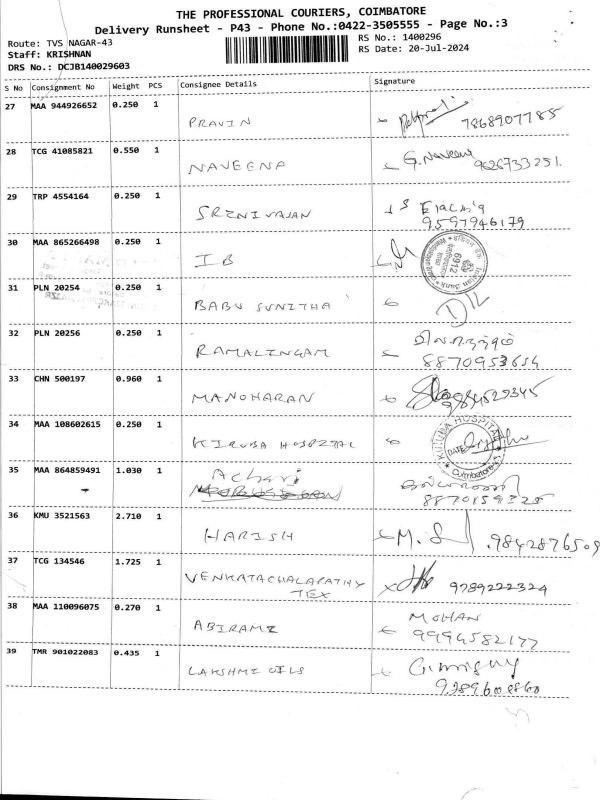 THE PROFESSIONAL COURIERS, COIMBATORE
Delivery Runsheet - P43 - Phone No.:0422-3505555 - Page No.:3
Route: TVS NAGAR-43
RS No.: 1400296
Staff: KRISHNAN
RS Date: 20-Jul-2024
DRS No.: DCJB140029603
S No Consignment No Weight PCS Consignee Details Signature
27 MAA 944926652 0.250 1
PRAVIN 7868907785
28 TCG 41085821 0.550 1
NAVEENA G. Naveena 9626733251.
29 TRP 4554164 0.250 1
SRINIVAJAN
9597946179
30 MAA 865266498 0.250 1
IB
Indian Bank
6912
31 PLN 20254 0.250 1
BABU SUNITHA
32 PLN 20256 0.250 1
RAMALINGAM
8870953654
33 CHN 500197 0.960 1
MANOHARAN 9884529345
34 MAA 108602615 0.250 1
KIRUBA HOSPITAL
KIRUBA HOSPITAL
DATE
Coimbatore
35 MAA 864859491 1.030 1
Achari
36 KMU 3521563 2.710 1
HARISH M. 9842876509
37 TCG 134546 1.725 1
VENKATACHALAPATHY
TEX
9789222324
38 MAA 110096075 0.270 1
ABIRAMI
MOHAN
9994582177
39 TMR 901022083 0.435 1
LAKSHMI OILS